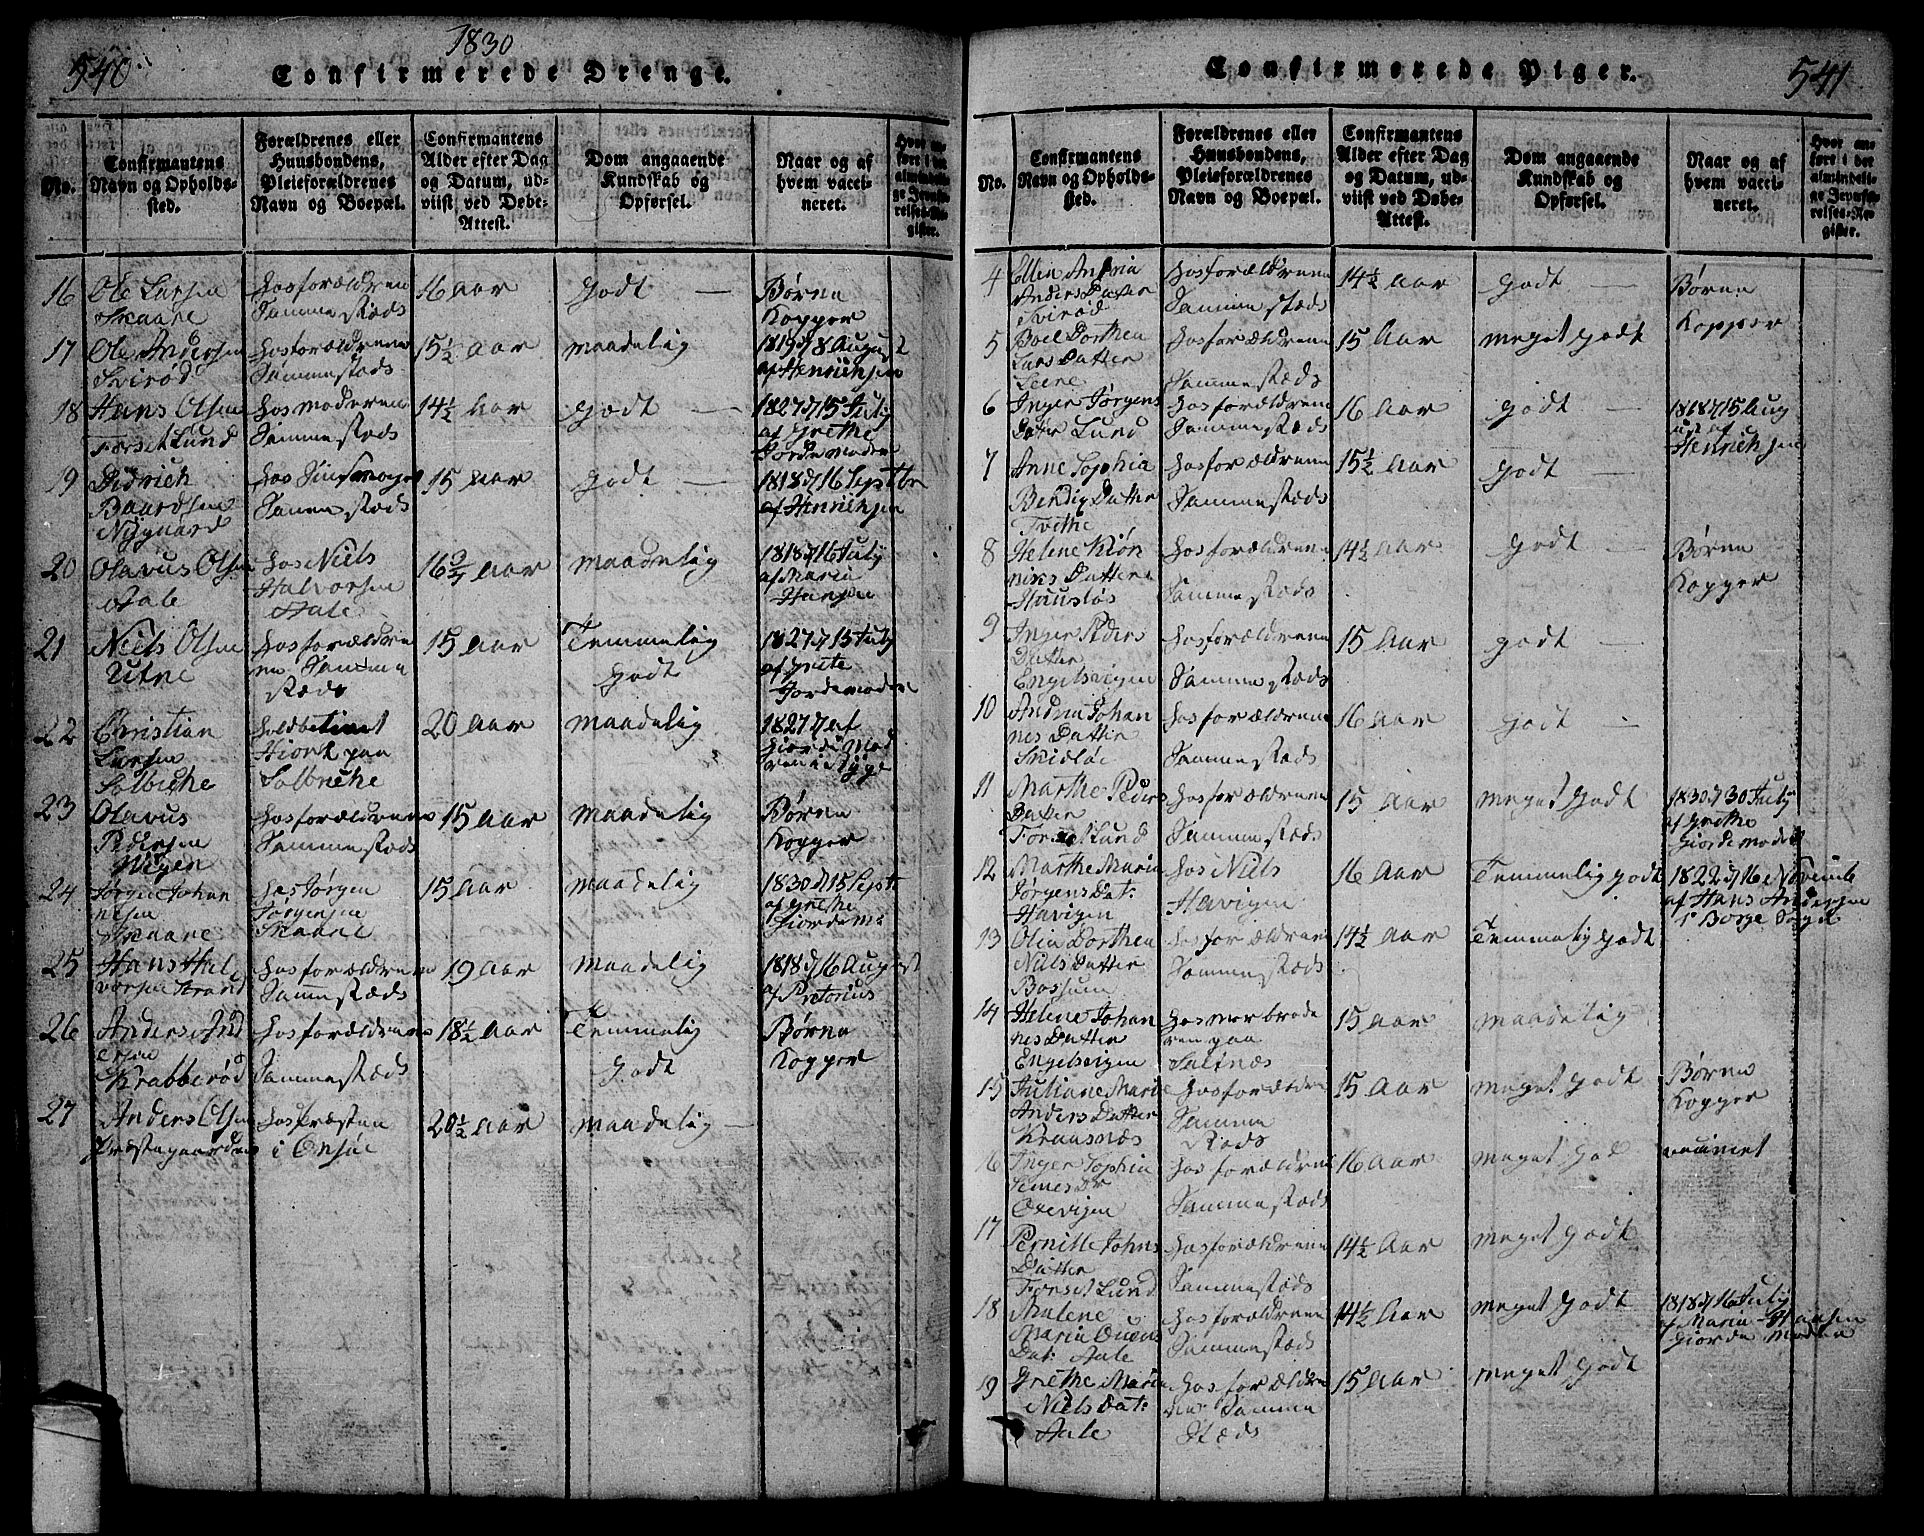 540.
1830
Confirmerede Drenge.
No.
Confirmantens
Navn og Opholds-
sted.
Forældrenes eller
Huusbondens,
Pleieforældrenes
Navn og Boepæl.
Confirmantens
Alder efter Dag
og Datum, ud-
viist ved Døbe-
Attest.
Dom angaaende
Kundskab og
Opførsel.
Naar og af
hvem vacci-
neret.
16 Ole Larsen
Skaare
hos forældrene
Sammestæds
16 aar
godt —
Børne
Kopper
17 Ole Andersen
Svirød
hos forældrene
Sammestæds
15½ aar
maadelig
1819 d/18 August
af Henrichsen
18 Hans Olsen
Forset Lund
hos moderen
Sammestæds
14½ aar
godt —
1827 d/15 July
af Grethe
Jordemoder
19 Didrich
Baardsen
Nÿgaard
hos
Sammestæds
15 aar
godt —
1818 d/16 Septbr
af Henrichsen
20 Olavus Olsen
Aale
hos Niels
Halvorsen
Aale
16¾ aar
maadelig
1818 d/16 July
af Maria
Hansen
21 Niels Olsen
Utne
hos forældre
ne Samme
stæds
15 aar
Temmelig
godt
1827 d/15 July
af Grete
Jordemoder
22 Christian
Larsen
Solbrekke
Hiort paa
Solbrekke
20 aar
maadelig
1827 af
Giordemod
ren i Rÿge
23 Olavus
Pedersen
Wiigen
hos forældrene
Sammestæds
15 aar
maadelig
Børne
Kopper
24 Jørgen Johan
nesen
Skaare
hos Jørgen
Jørgensen
Skaare
15 aar
maadelig
1830 d/15 Sept
af Grethe
Giordem:
25 Hans Hal
vorsen Strand
hos forældrene
Sammestæds
19 aar
maadelig
1818 d/16 August
af Pretorius
26 Anders And
ersen
Krabberød
hos forældrene
Sammestæds
18½ aar
Temmelig
godt
Børne
Kopper
27 Anders Olsen
Præstegaarden
hos Præsten
i Onsøe
20½ aar
maadelig —
Confirmerede Piger.
541
No.
Confirmantens
Navn og Opholds-
sted.
Forældrenes eller
Huusbondens,
Pleieforældrenes
Navn og Boepæl.
Confirmantens
Alder efter Dag
og Datum, ud-
viist ved Døbe-
Attest.
Dom angaaende
Kundskab og
Opførsel.
Naar og af
hvem vacci-
neret.
Hvor an-
ført i det
almindeli-
ge Jevnfø-
relses-Re-
gister.
4 Ellin Andria
Anders Datter
Svirød
hos forældrene
Sammestæds
14½ aar
godt —
Børne
Kopper
5 Boel Dorthea
Lars Datter
Leere
hos forældrene
Sammestæds
15 aar
meget godt
6 Inger Jørgens
Datter Lund
hos forældrene
Sammestæds
16 aar
godt —
1818 d/15 Aug
ust af
Henrichsen
7 Anne Sophia
Bendix Datter
Tvethe
hos forældrene
Sammestæds
15½ aar
godt —
8 Helene
Datter
Hausløs
hos forældrene
Sammestæds
14½ aar
godt —
Børne
Kopper
9 Inger Peders
Datter
Engelsvigen
hos forældrene
Sammestæds
15 aar
godt —
10 Andrea Johan
nes Datter
Skidløe
hos forældrene
Sammestæds
16 aar
godt —
11 Marthe Peders
Datter
Forset Lund
hos forældrene
Sammestæds
15 aar
meget godt
1830 d/30 July
af Grethe
Giordemoder
12 Marthe Maria
Jørgens Dat:
Havigen
hos Niels
Havigen
16 aar
Temmelig godt
1822 d/16 Novemb
af Hans Andersen
i Borge Sogn
13 Olia Dorthea
Niels Datter
Bossum
hos forældrene
Sammestæds
14½ aar
Temmelig godt
14 Helene Johan
nes Datter
Engelsvigen
hos morbrode
ren paa
Saltnæs
15 aar
maadelig
15 Juliane Marie
Anders Datter
Kraasnæs
hos forældre
Samme
stæds
15 aar
meget godt
Børne
Kopper
16 Inger Sophia
Oxevigen
hos forældrene
Sammestæds
16 aar
meget god
17 Pernille Johns
Datter
Forset Lund
hos forældrene
Sammestæds
14½ aar
meget godt
18 Malene
Maria Ouens
Dat: Aale
hos forældrene
Sammestæds
14½ aar
meget godt
1818 d/16 July
af Maria Hansen
Giorde Moder
19 Grethe Maria
Niels Dat:
Aale
hos foræld
rene Samme
Stæds
15 aar
meget godt